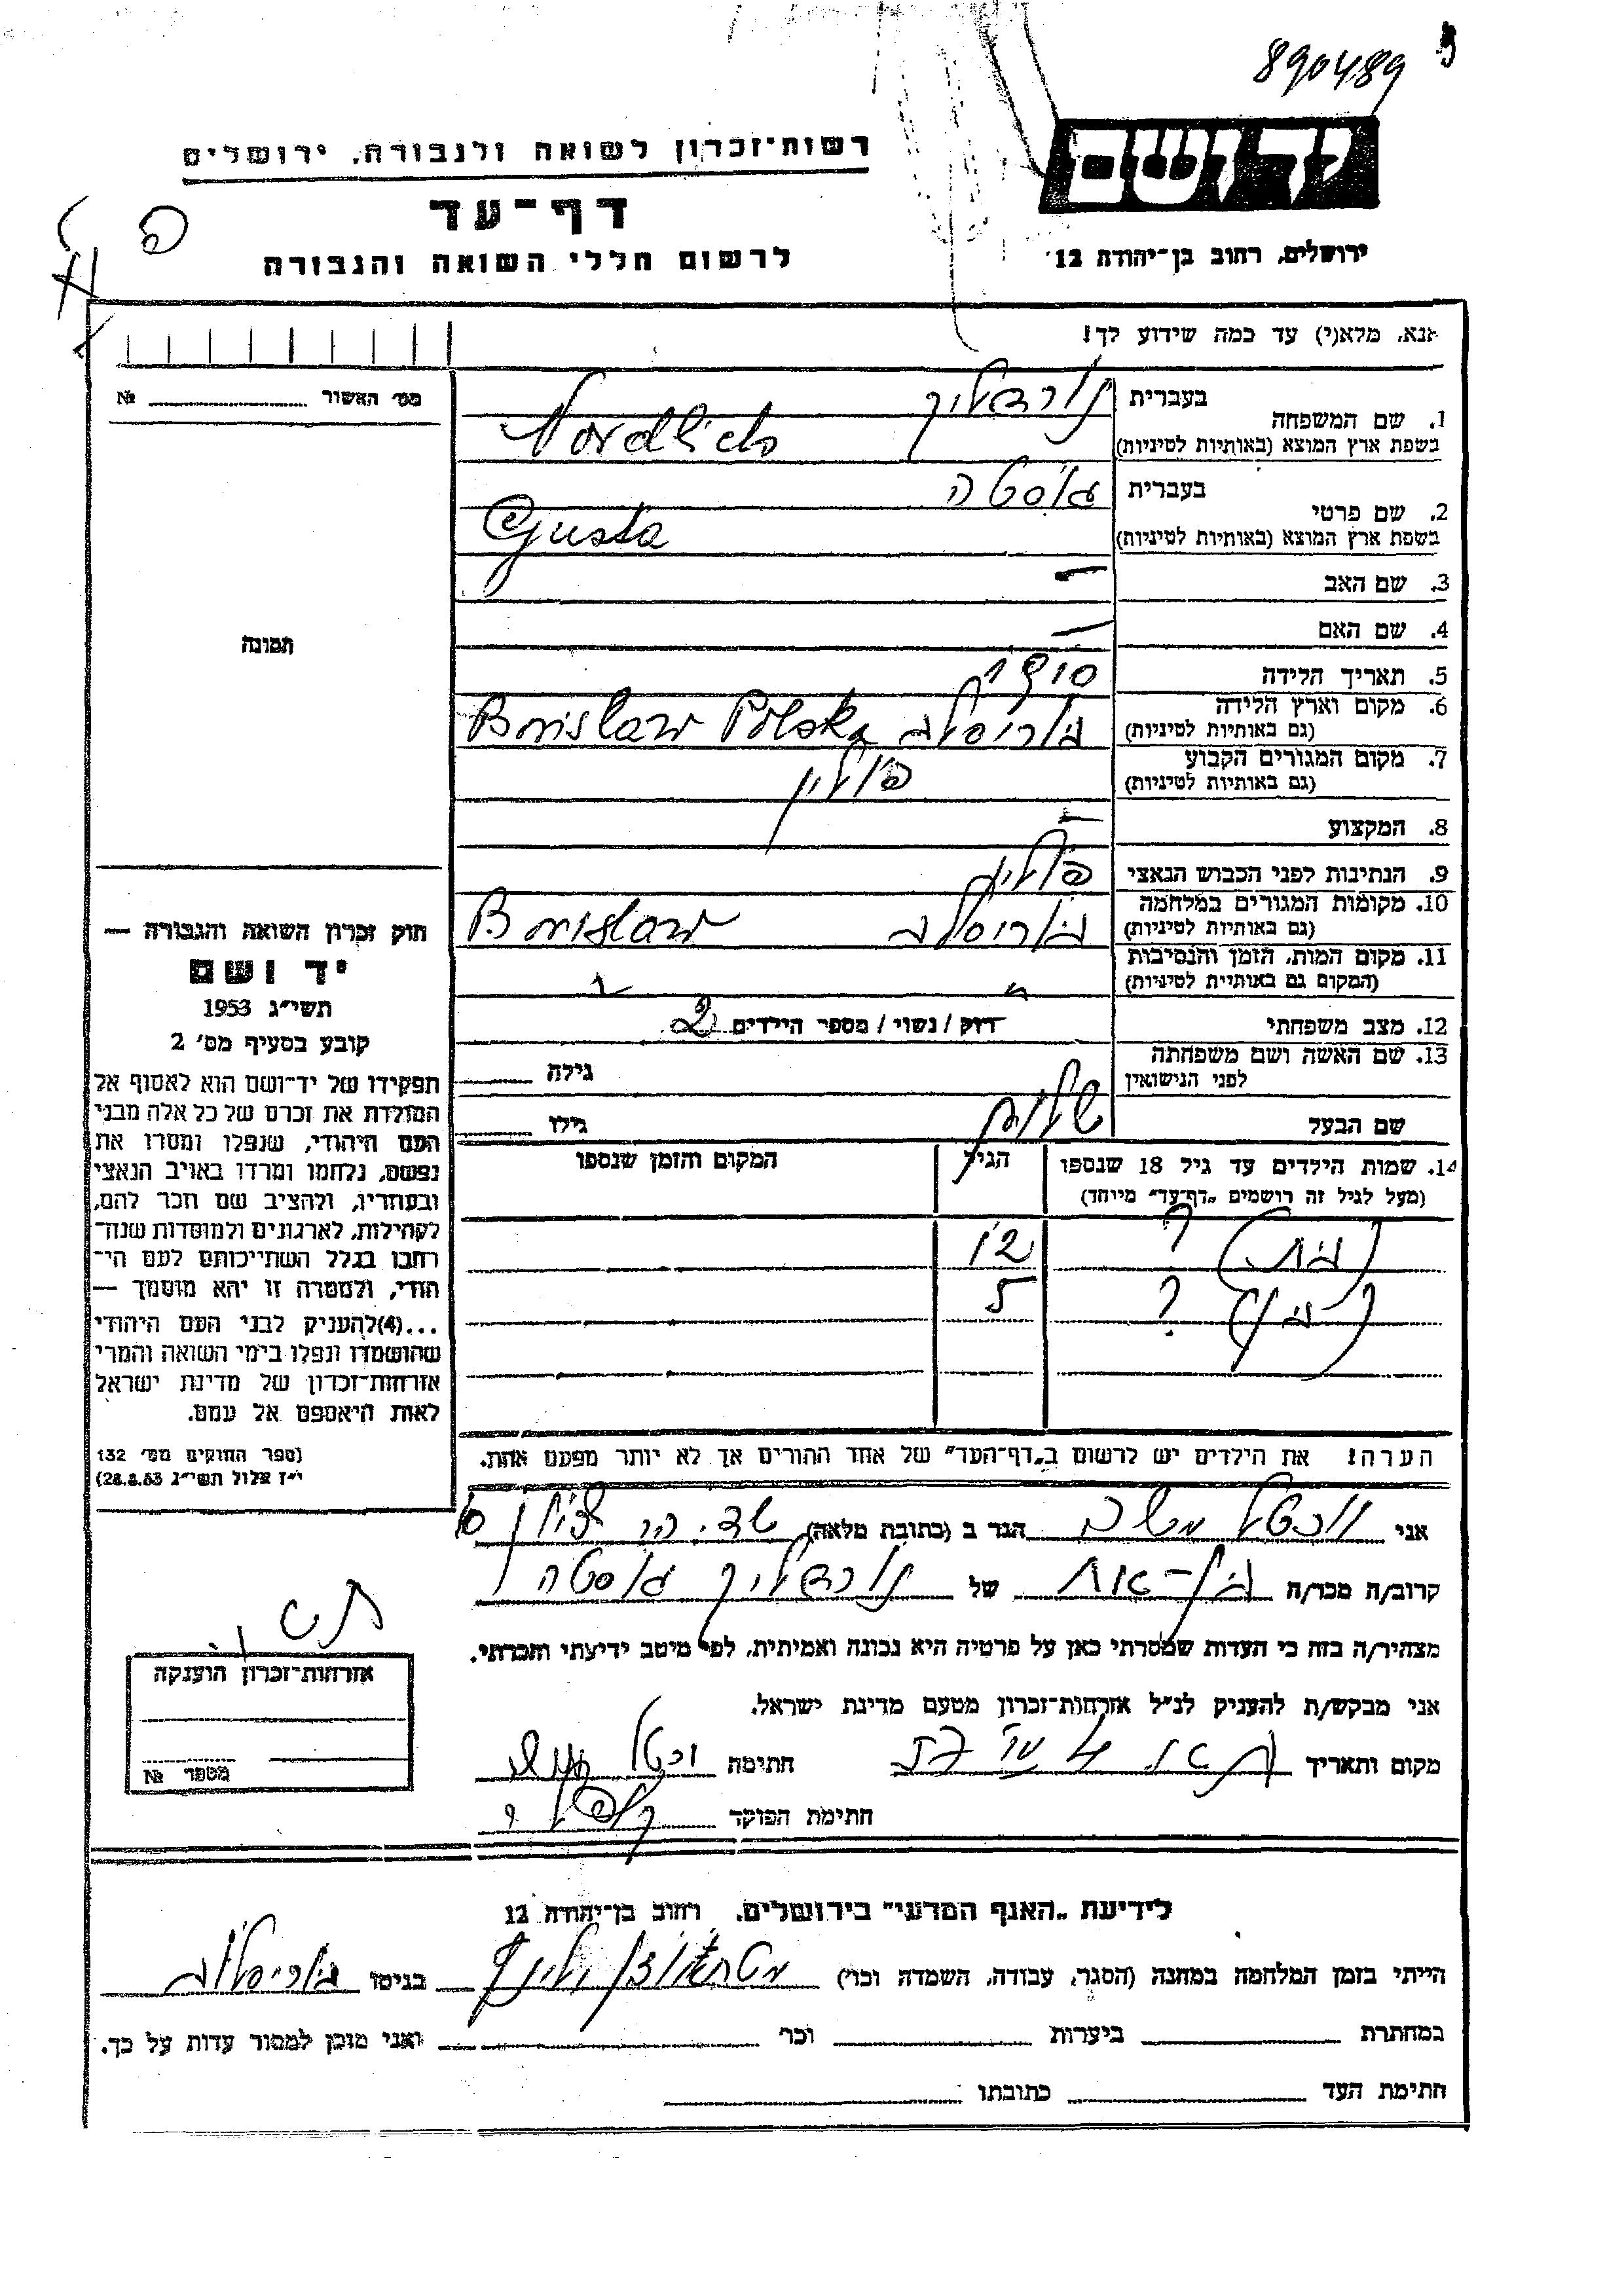 890489
יד ושם
רשות־זכרון לשואה ולגבורה, ירושלים
דף־עד
לרשום חללי השואה והגבורה
ירושלים, רחוב בן־יהודה 12
אנא, מלא(י) עד כמה שידוע לך!
מס׳ האשור № 
1. שם המשפחה בעברית נורדליך
בשפת ארץ המוצא (באותיות לטיניות) Nordlich
2. שם פרטי בעברית גוסטה
בשפת ארץ המוצא (באותיות לטיניות) Gusta
3. שם האב –
4. שם האם –
תמונה
5. תאריך הלידה 1910
6. מקום וארץ הלידה (גם באותיות לטיניות) בוריסלב Borislaw Polska
7. מקום המגורים הקבוע (גם באותיות לטיניות) פולין
8. המקצוע –
9. הנתינות לפני הכבוש הנאצי פולין
10. מקומות המגורים במלחמה (גם באותיות לטיניות) בוריסלב Borislaw
11. מקום המות, הזמן והנסיבות (המקום גם באותיות לטיניות)
12. מצב משפחתי רווק / נשוי / מספר הילדים 2
13. שם האשה ושם משפחתה לפני הנישואין גילה
שם הבעל שלום גילו
14. שמות הילדים עד גיל 18 שנספו הגיל המקום והזמן שנספו
(מעל לגיל זה רושמים „דף־עד״ מיוחד)
(בת) ? 12
(בן) ? 5
הערה! את הילדים יש לרשום ב„דף־העד״ של אחד ההורים אך לא יותר מפעם אחת.
חוק זכרון השואה והגבורה —
יד ושם
תשי״ג 1953
קובע בסעיף מס׳ 2
תפקידו של יד־ושם הוא לאסוף אל
המולדת את זכרם של כל אלה מבני
העם היהודי, שנפלו ומסרו את
נפשם, נלחמו ומרדו באויב הנאצי
ובעוזריו, ולהציב שם וזכר להם,
לקהילות, לארגונים ולמוסדות שנח־
רבו בגלל השתייכותם לעם הי־
הודי, ולמטרה זו יהא מוסמך —
...(4)להעניק לבני העם היהודי
שהושמדו ונפלו בימי השואה והמרי
אזרחות־זכרון של מדינת ישראל
לאות היאספם אל עמם.
(ספר החוקים מס׳ 132
י״ז אלול תשי״ג 28.8.53)
אני וכטל הגר ב (כתובת מלאה) שד. הר ציון
קרוב/ה מכר/ה בן־דוד של נורדליך גוסטה
מצהיר/ה בזה כי העדות שמסרתי כאן על פרטיה היא נכונה ואמיתית, לפי מיטב ידיעתי והכרתי.
אני מבקש/ת להעניק לנ״ל אזרחות־זכרון מטעם מדינת ישראל.
מקום ותאריך חתימה וכטל
חתימת הפוקד
אזרחות־זכרון הוענקה
מספר №
לידיעת „האגף המדעי״ בירושלים, רחוב בן־יהודה 12
הייתי בזמן המלחמה במחנה (הסגר, עבודה, השמדה וכו׳) מטהאוזן בגיטו בוריסלב
במחתרת ביערות וכו׳ ואני מוכן למסור עדות על כך.
חתימת העד כתובתו